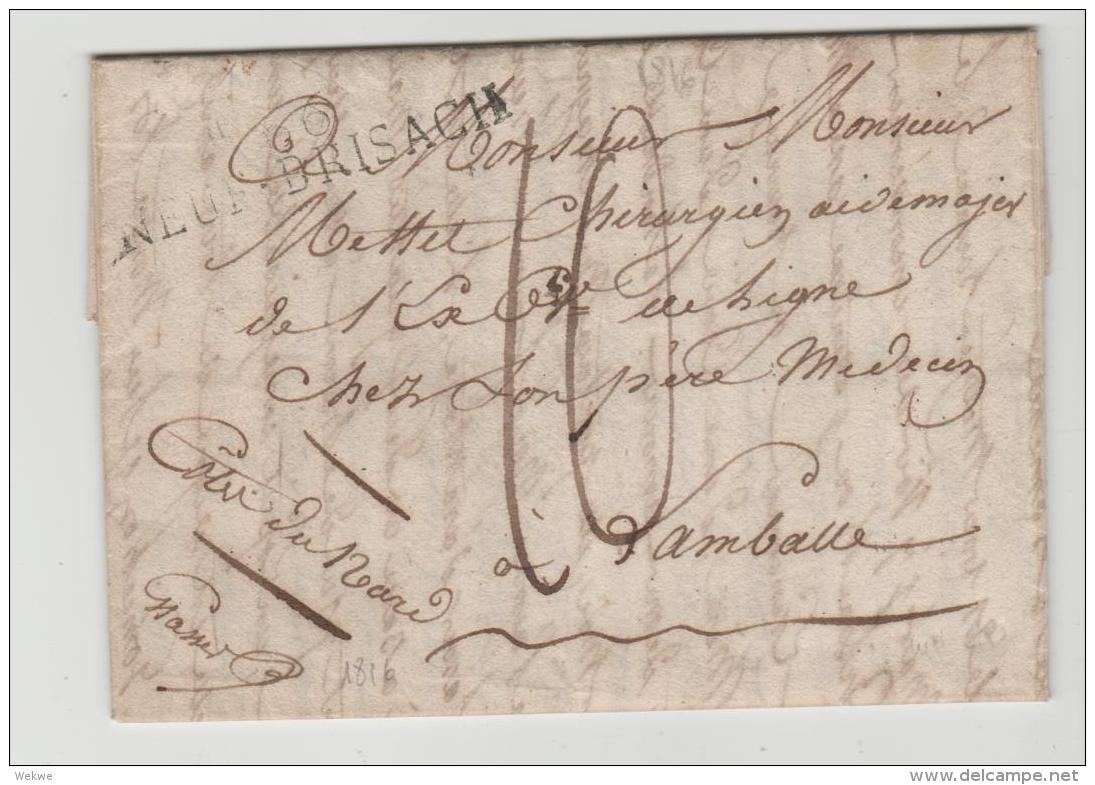 66
NEUF-BRISACH
1816
Monsieur Monsieur
Mettet Chirurgien aidemajor
de l'Ex de Ligne
chez Son père Medecin
10
à Lamballe
Cote du Nord
1816
Wekwe
www.delcampe.net